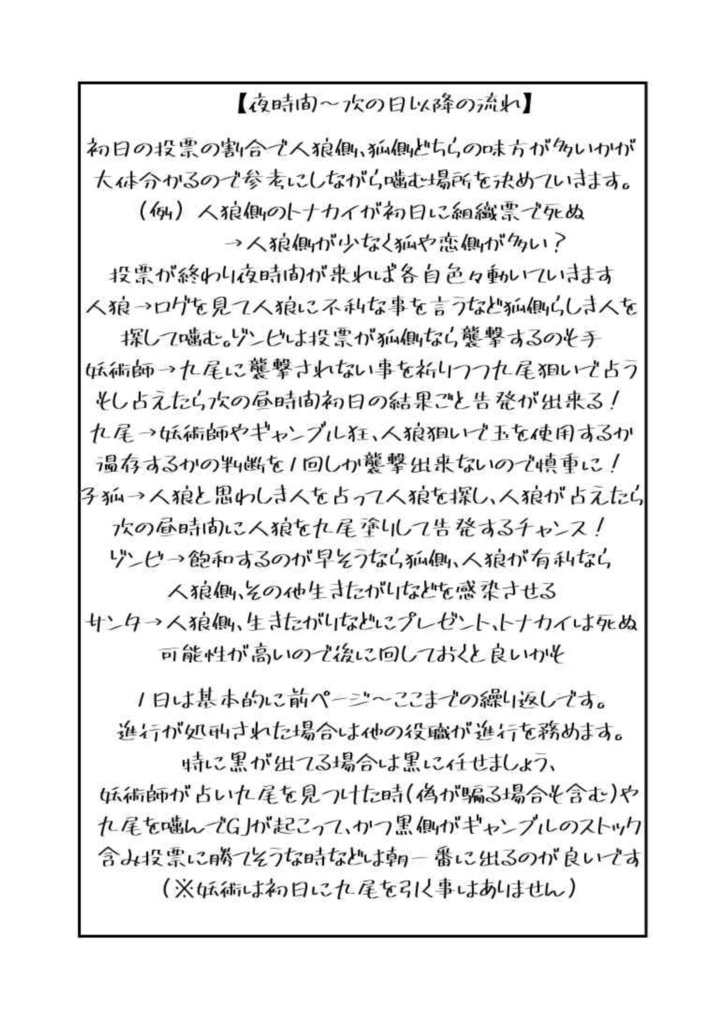 【夜時間～次の日以降の流れ】
初日の投票の割合で人狼側、狐側どちらの味方が多いかが
大体分かるので参考にしながら噛む場所を決めていきます。
（例）人狼側のトナカイが初日に組織票で死ぬ
→人狼側が少なく狐や恋側が多い？
投票が終わり夜時間が来れば各自色々動いていきます
人狼→ログを見て人狼に不利な事を言うなど狐側らしき人を
探して噛む。ゾンビは投票が狐側なら襲撃するのも手
妖術師→九尾に襲撃されない事を祈りつつ九尾狙いで占う
もし占えたら次の昼時間初日の結果ごと告発が出来る！
九尾→妖術師やギャンブル狂、人狼狙いで玉を使用するか
温存するかの判断を1回しか襲撃出来ないので慎重に！
子狐→人狼と思わしき人を占って人狼を探し、人狼が占えたら
次の昼時間に人狼を九尾塗りして告発するチャンス！
ゾンビ→飽和するのが早そうなら狐側、人狼が有利なら
人狼側、その他生きたがりなどを感染させる
サンタ→人狼側、生きたがりなどにプレゼント、トナカイは死ぬ
可能性が高いので後に回しておくと良いかも
1日は基本的に前ページ～ここまでの繰り返しです。
進行が処刑された場合は他の役職が進行を務めます。
特に黒が出てる場合は黒に任せましょう、
妖術師が占い九尾を見つけた時(偽が騙る場合も含む)や
九尾を噛んでGJが起こって、かつ黒側がギャンブルのストック
含み投票に勝てそうな時などは朝一番に出るのが良いです
（※妖術は初日に九尾を引く事はありません）